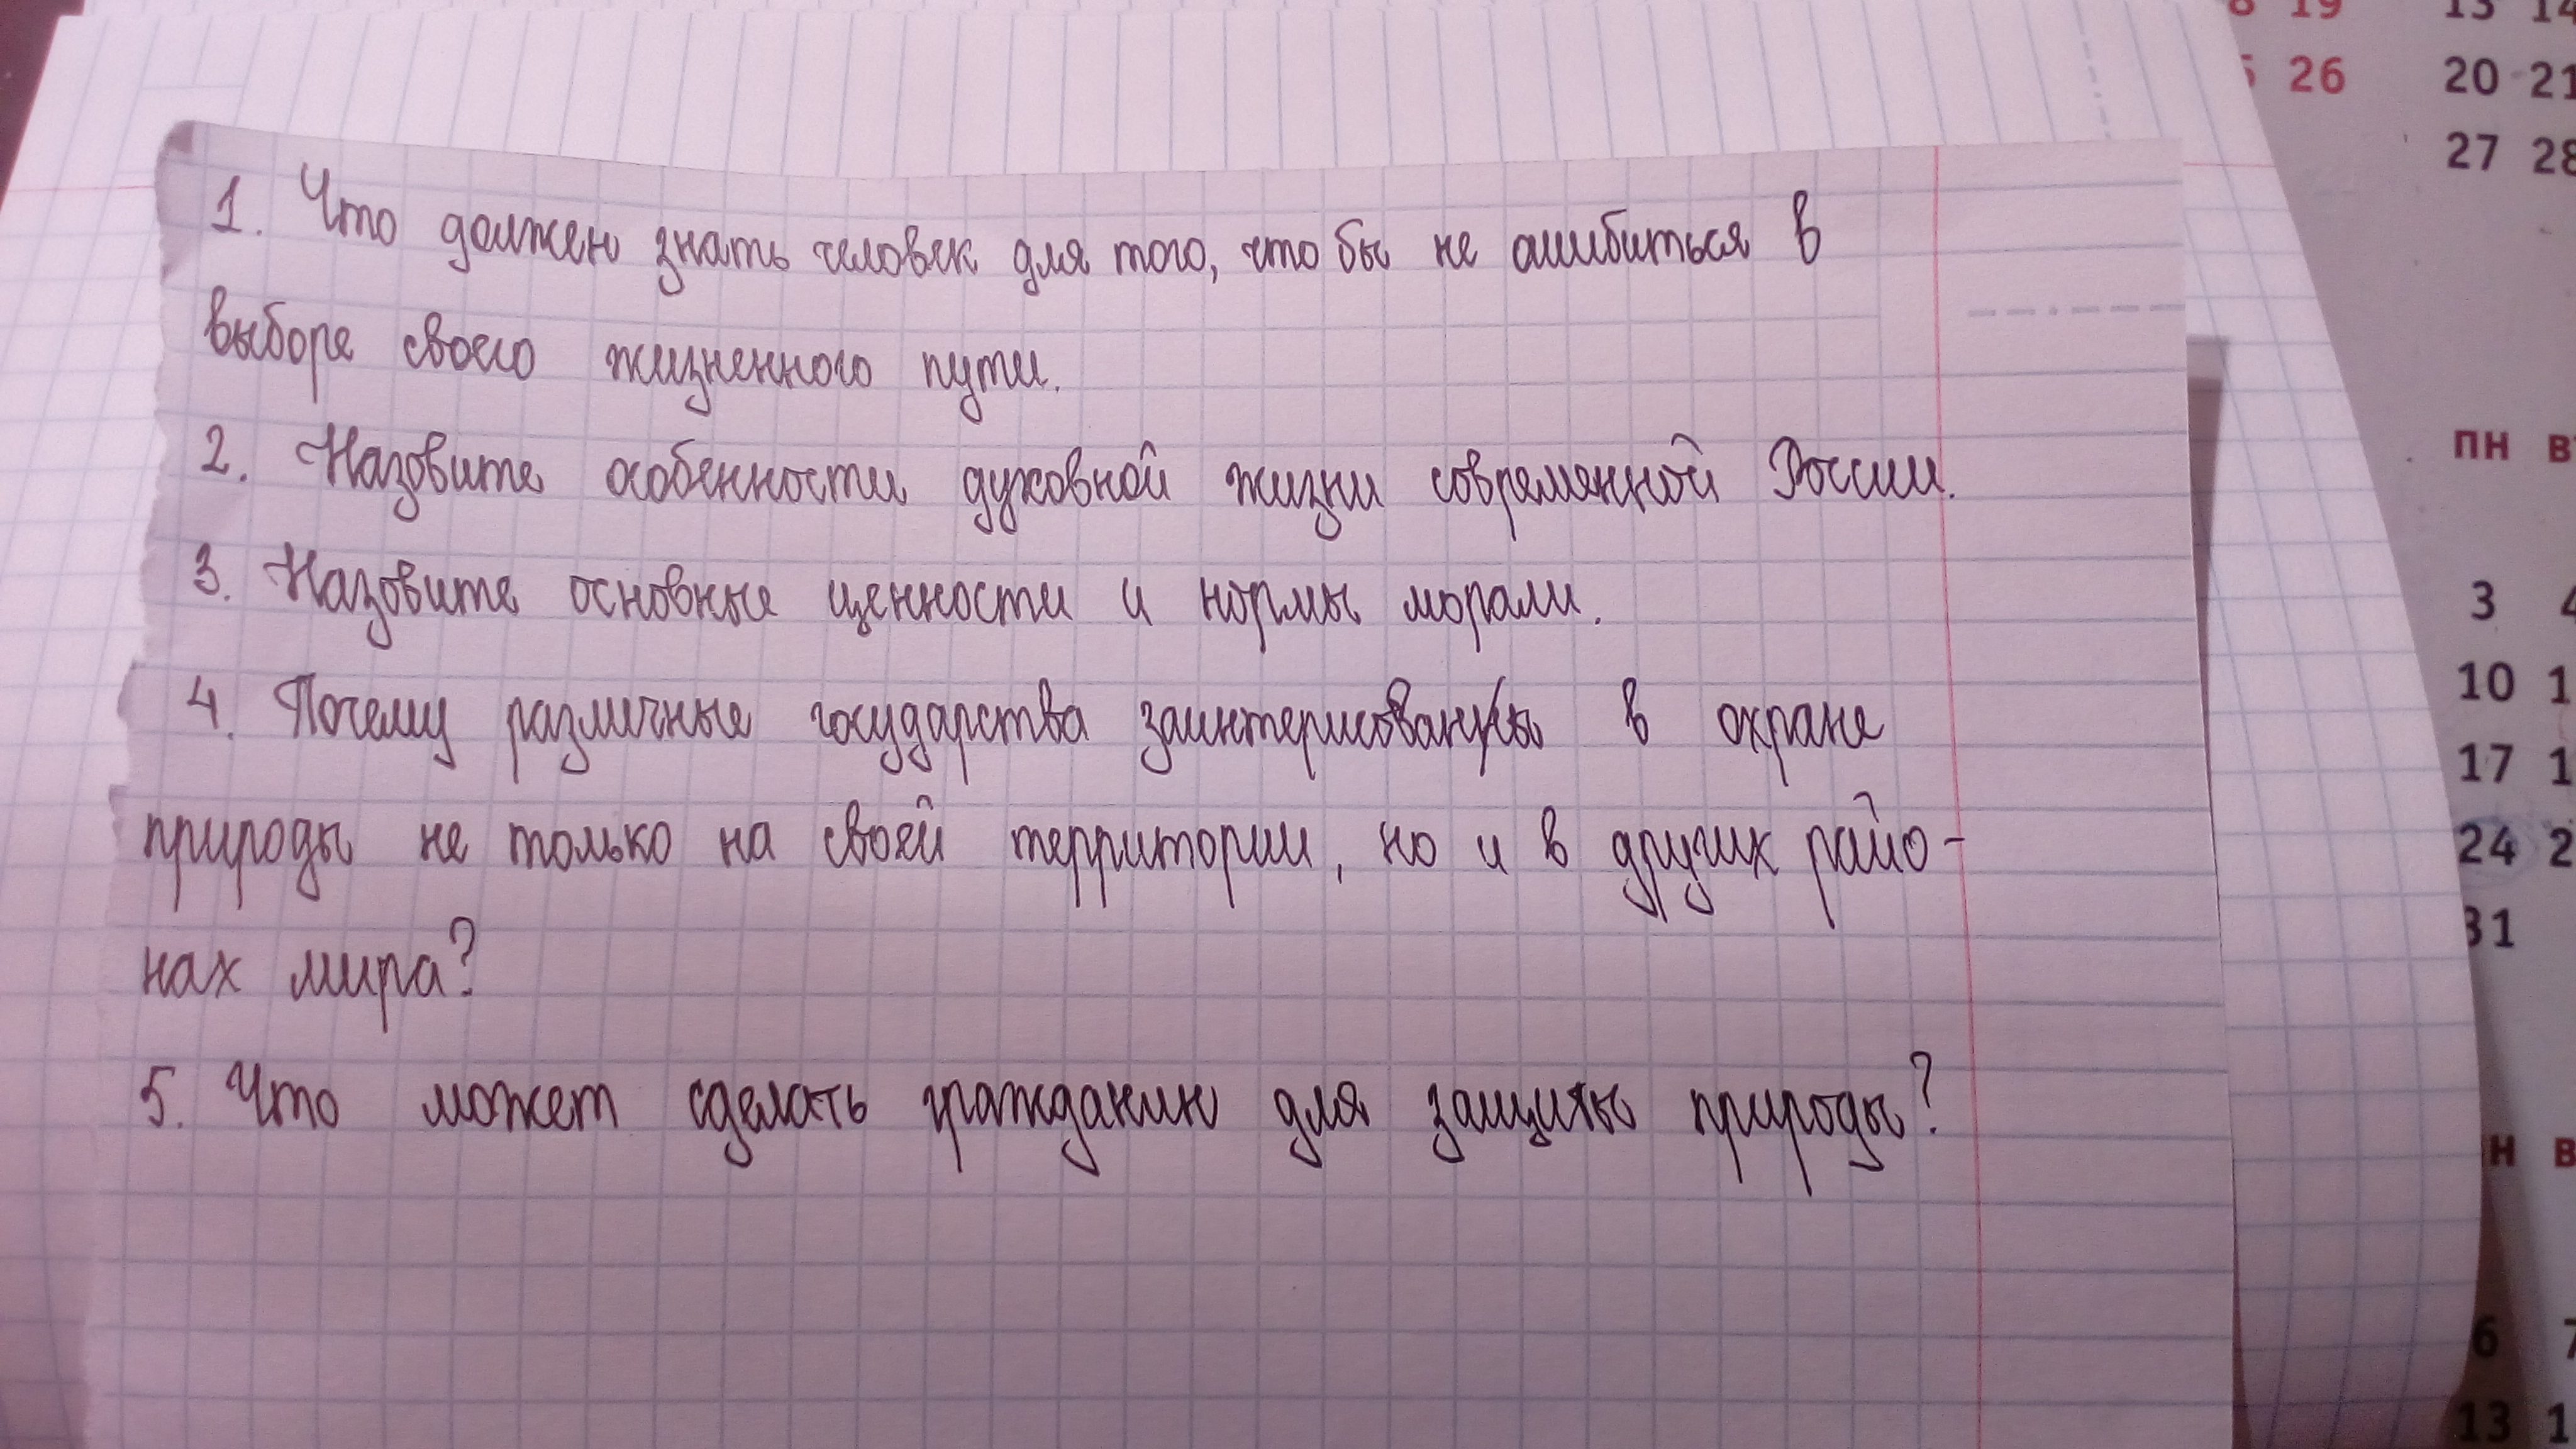 1. Что должен знать человек для того, что бы не ошибиться в
выборе своего жизненного пути.
2. Назовите особенности духовной жизни современной России.
3. Назовите основные ценности и нормы морали.
4. Почему различные государства заинтерисованы в охране
природы не только на своей территории, но и в других райо-
нах мира?
5. Что может сделать гражданин для защиты природы?
19 13 14
26 20 21
27 28
ПН В
3 4
10 1
17 1
24 2
31
Н В
6 7
13 1